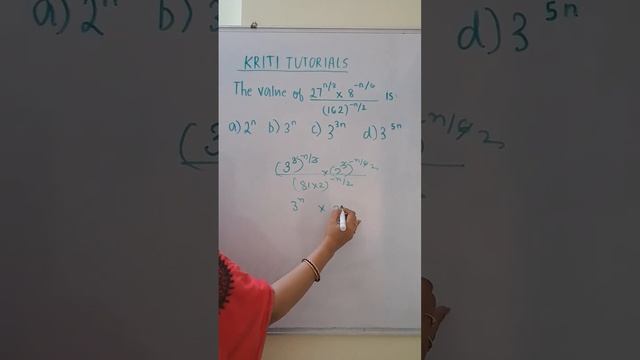 KRITI TUTORIALS
The value of 27^n/3 × 8^-n/6 / (162)^-n/2 is
a) 2^n b) 3^n c) 3^3n d) 3^5n
(3^3)^n/3 × (2^3)^-n/6 2 / (81×2)^-n/2
3^n ×